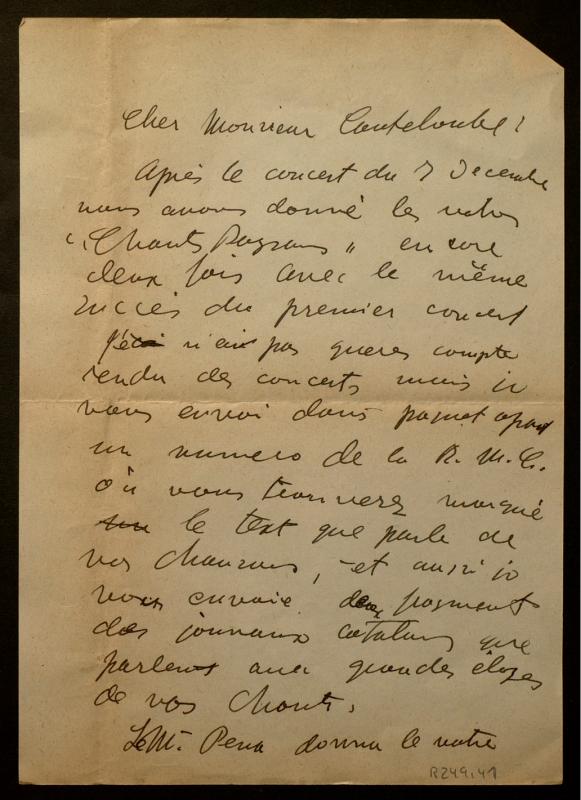 Cher Monsieur Canteloube!
Après le concert du 7 Decembre
nous avons donné les votres
"Chants Paysans" encore
deux fois avec le même
succés du premier concert
n'ai pas queres compte
rendu des concerts mais je
vous envoi dans paquet apart
un numero de la R. M. C.
où vous trouverez marqué
le text que parle de
vos chansons, et aussi je
vous envoie deux fragments
des journaux catalans que
parlent aux grandes éloges
de vos Chants.
Le Mt. Pena donna le votre
R249.41